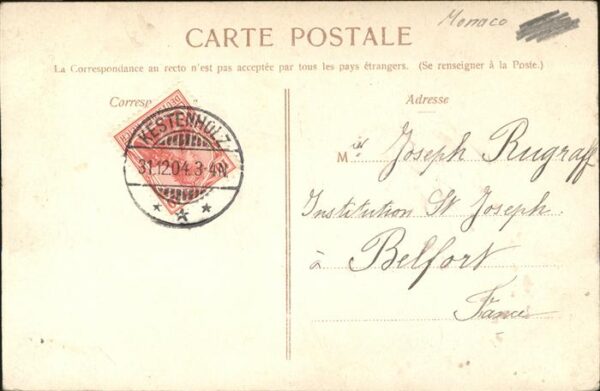 Monaco
CARTE POSTALE
La Correspondance au recto n'est pas acceptée par tous les pays étrangers. (Se renseigner à la Poste.)
Corresp
Adresse
KESTENHOLZ
31.12.04.3-4N
Mr Joseph Rugraff
Institution St Joseph
à Belfort
France